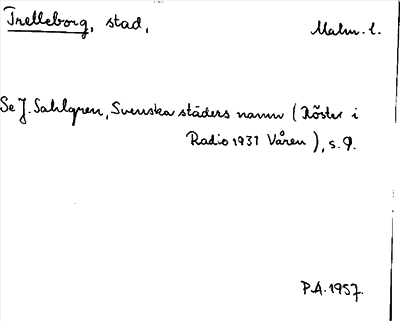 Trelleborg, stad, Malm. l.
Se J. Sahlgren, Svenska städers namn (Röster i
Radio 1937 Våren), s. 9.
P.A. 1957.